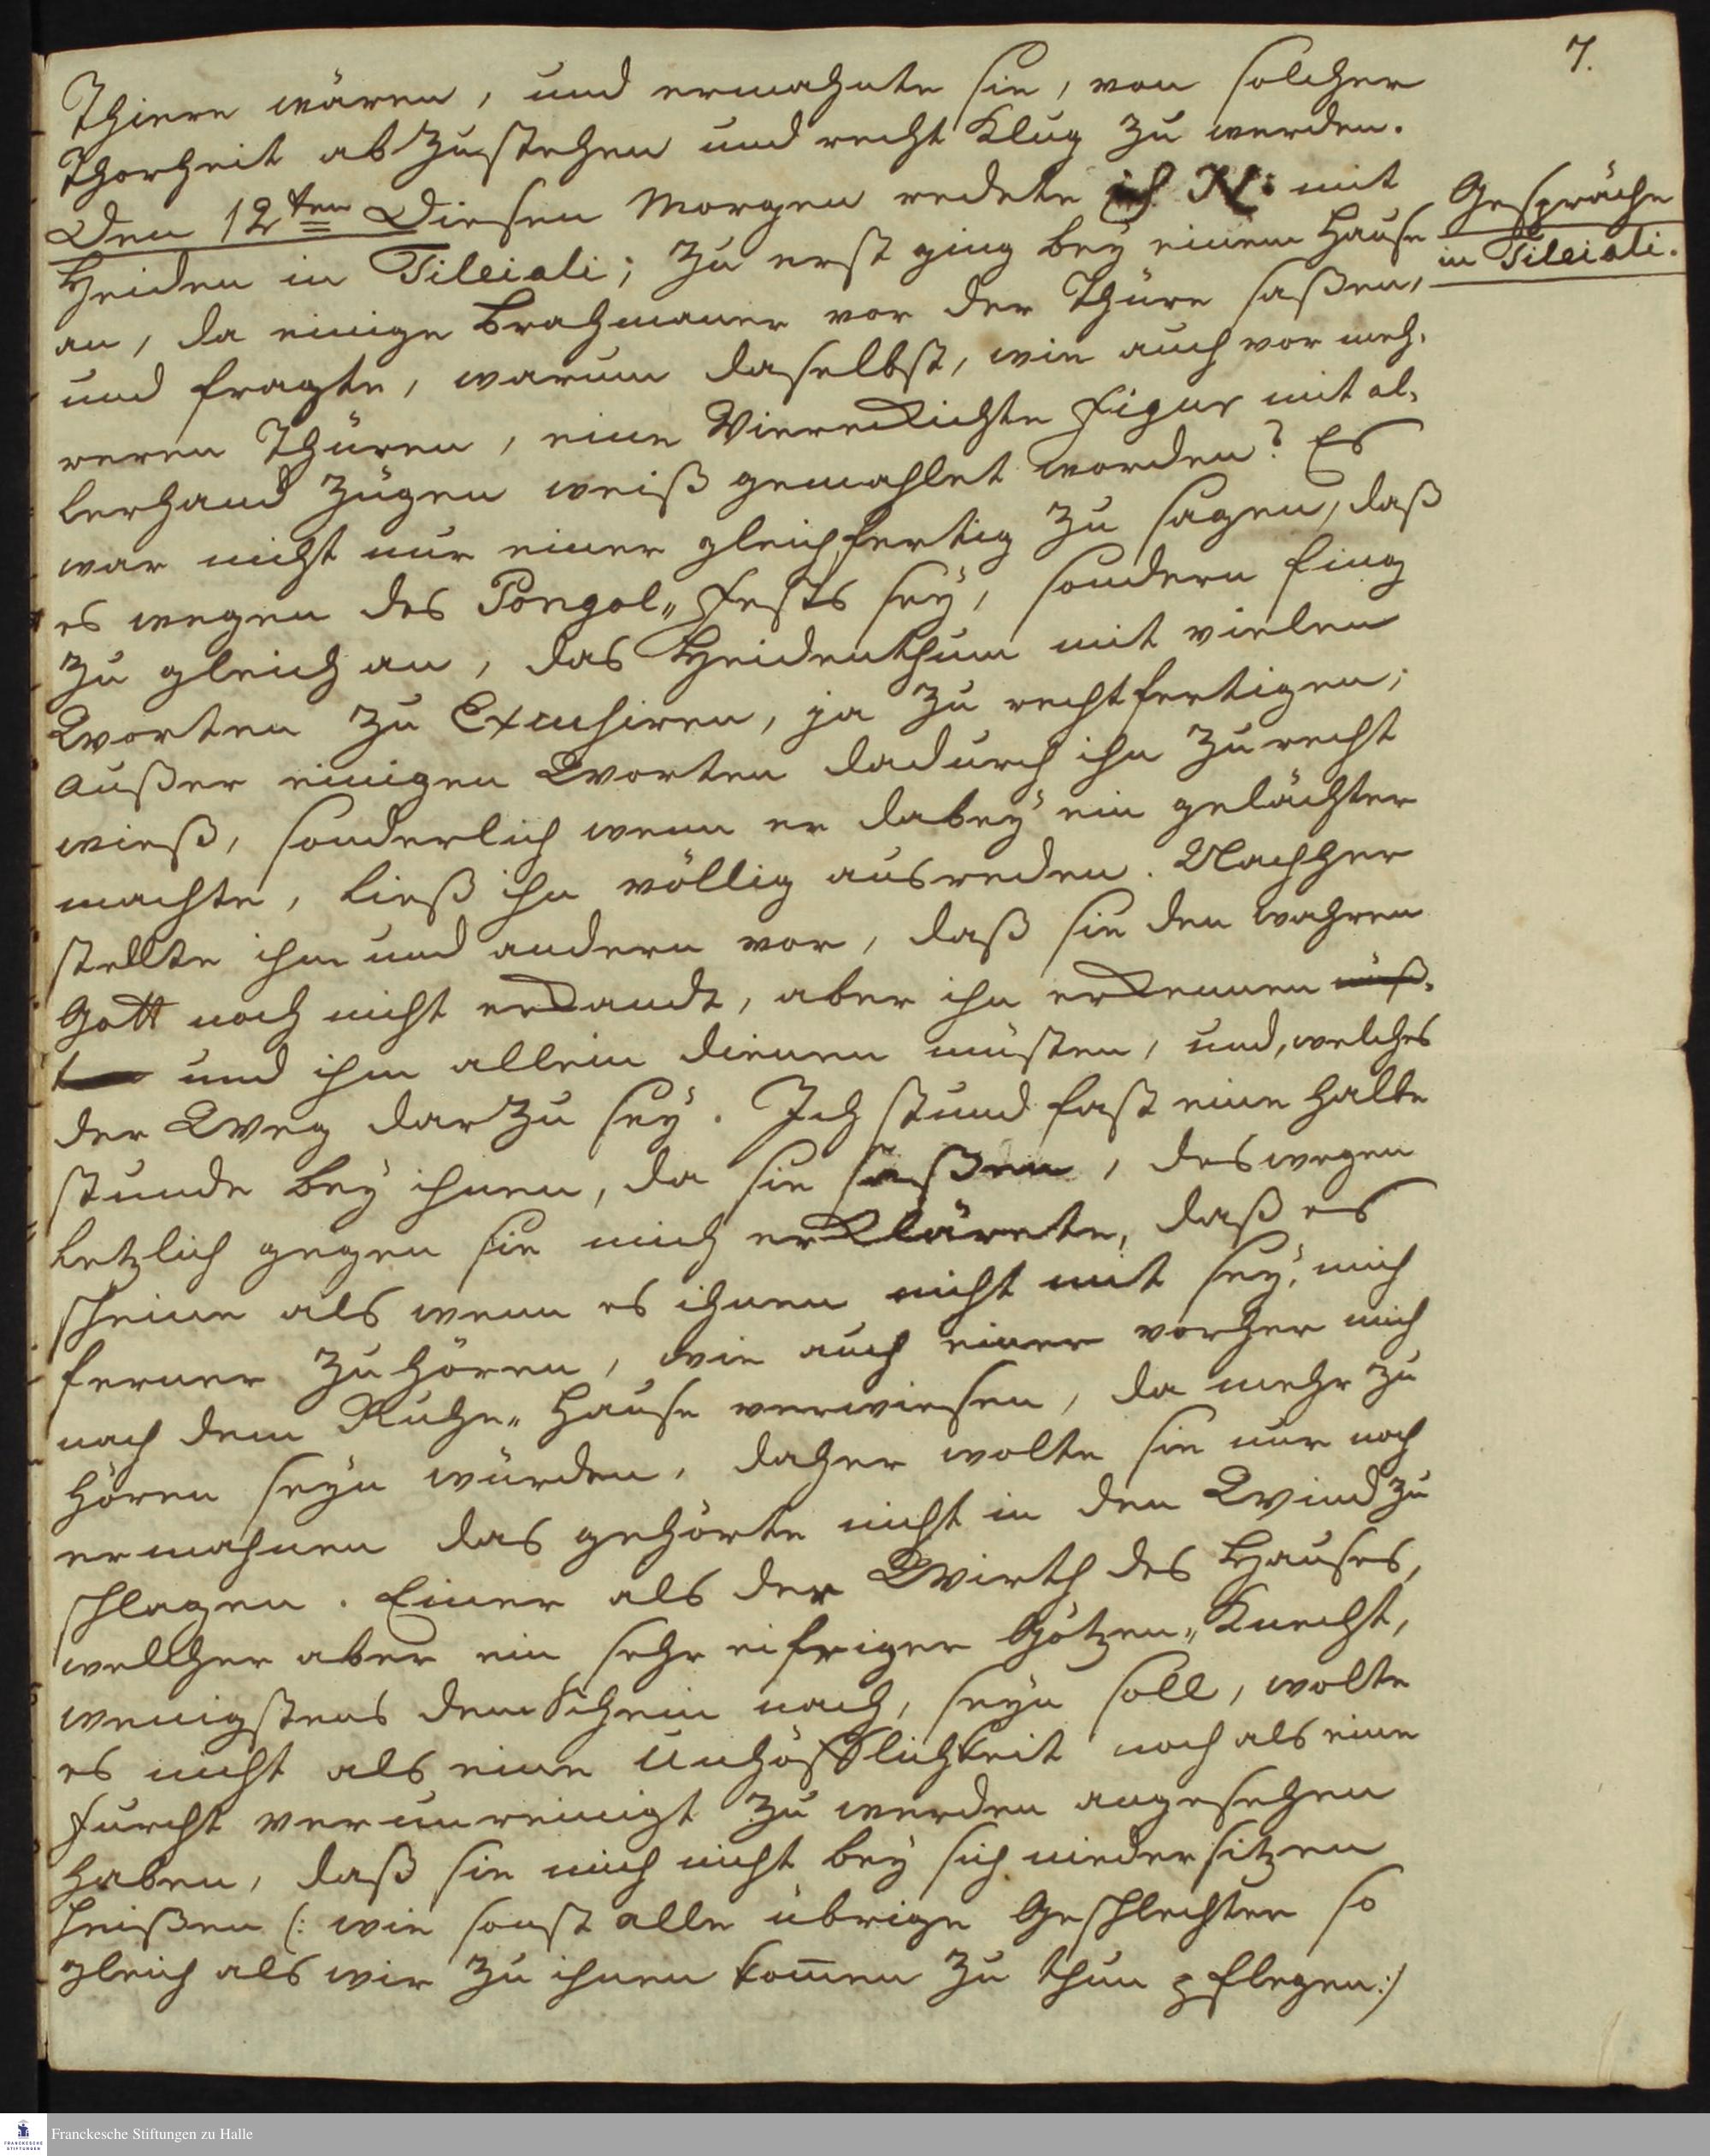 7.
Thiere wären, und ermahnte sie, von solcher
Thorheit abzustehen und recht Klug zu werden.
Den 12ten Diesen Morgen redete ich N: mit
Gespräche
in Tilleiali.
Heiden in Tilleiali; zu erst ging bey einem Hause
an, da einige Brahmaner vor der Thüre saßen,
und fragte, warum daselbst, wie auch vor meh-
reren Thüren, eine Viereckichte Figur mit al-
lerhand Zügen weiß gemahlet worden? Es
war nicht nur einer gleich fertig zu sagen, daß
es wegen des Pongol„Fests seÿ, sondern fing
zu gleich an, das Heidenthum mit vielen
Worten zu Excusiren, ja zu rechtfertigen;
außer einigen Worten dadurch ihn zurecht
wieß, sonderlich wenn er dabeÿ ein gelächter
machte, ließ ihn völlig ausreden. Nachher
stellte ihm und andern vor, daß sie den wahren
Gott noch nicht erkandt, aber ihn erkennen müß-
ten und ihm allein dienen müsten, und, welches
der Weg darzu seÿ. Ich stund fast eine halbe
stunde beÿ ihnen, da sie saßen, deswegen
letzlich gegen sie mich erklärete, daß es
scheine als wenn es ihnen nicht mit seÿ, mich
ferner zu hören, wie auch einer vorher mich
nach dem Ruhe„Hause verwiesen, da mehr zu
hören seÿn würden, daher wolte sie nur noch
ermahnen das gehörte nicht in den Wind zu
schlagen. Einer als der Wirth des Hauses,
wellcher aber ein sehr eifriger Götzen„Knecht,
wenigstens dem Schein nach, seÿn soll, wolte
es nicht als eine Unhöfflichkeit noch als eine
Furcht verunreinigt zu werden angesehen
haben, daß sie mich nicht beÿ sich niedersitzen
heißen (: wie sonst alle übrige Geschlechter so
gleich als wir zu ihnen kom̅en zu thun pflegen:)
Franckesche Stiftungen zu Halle